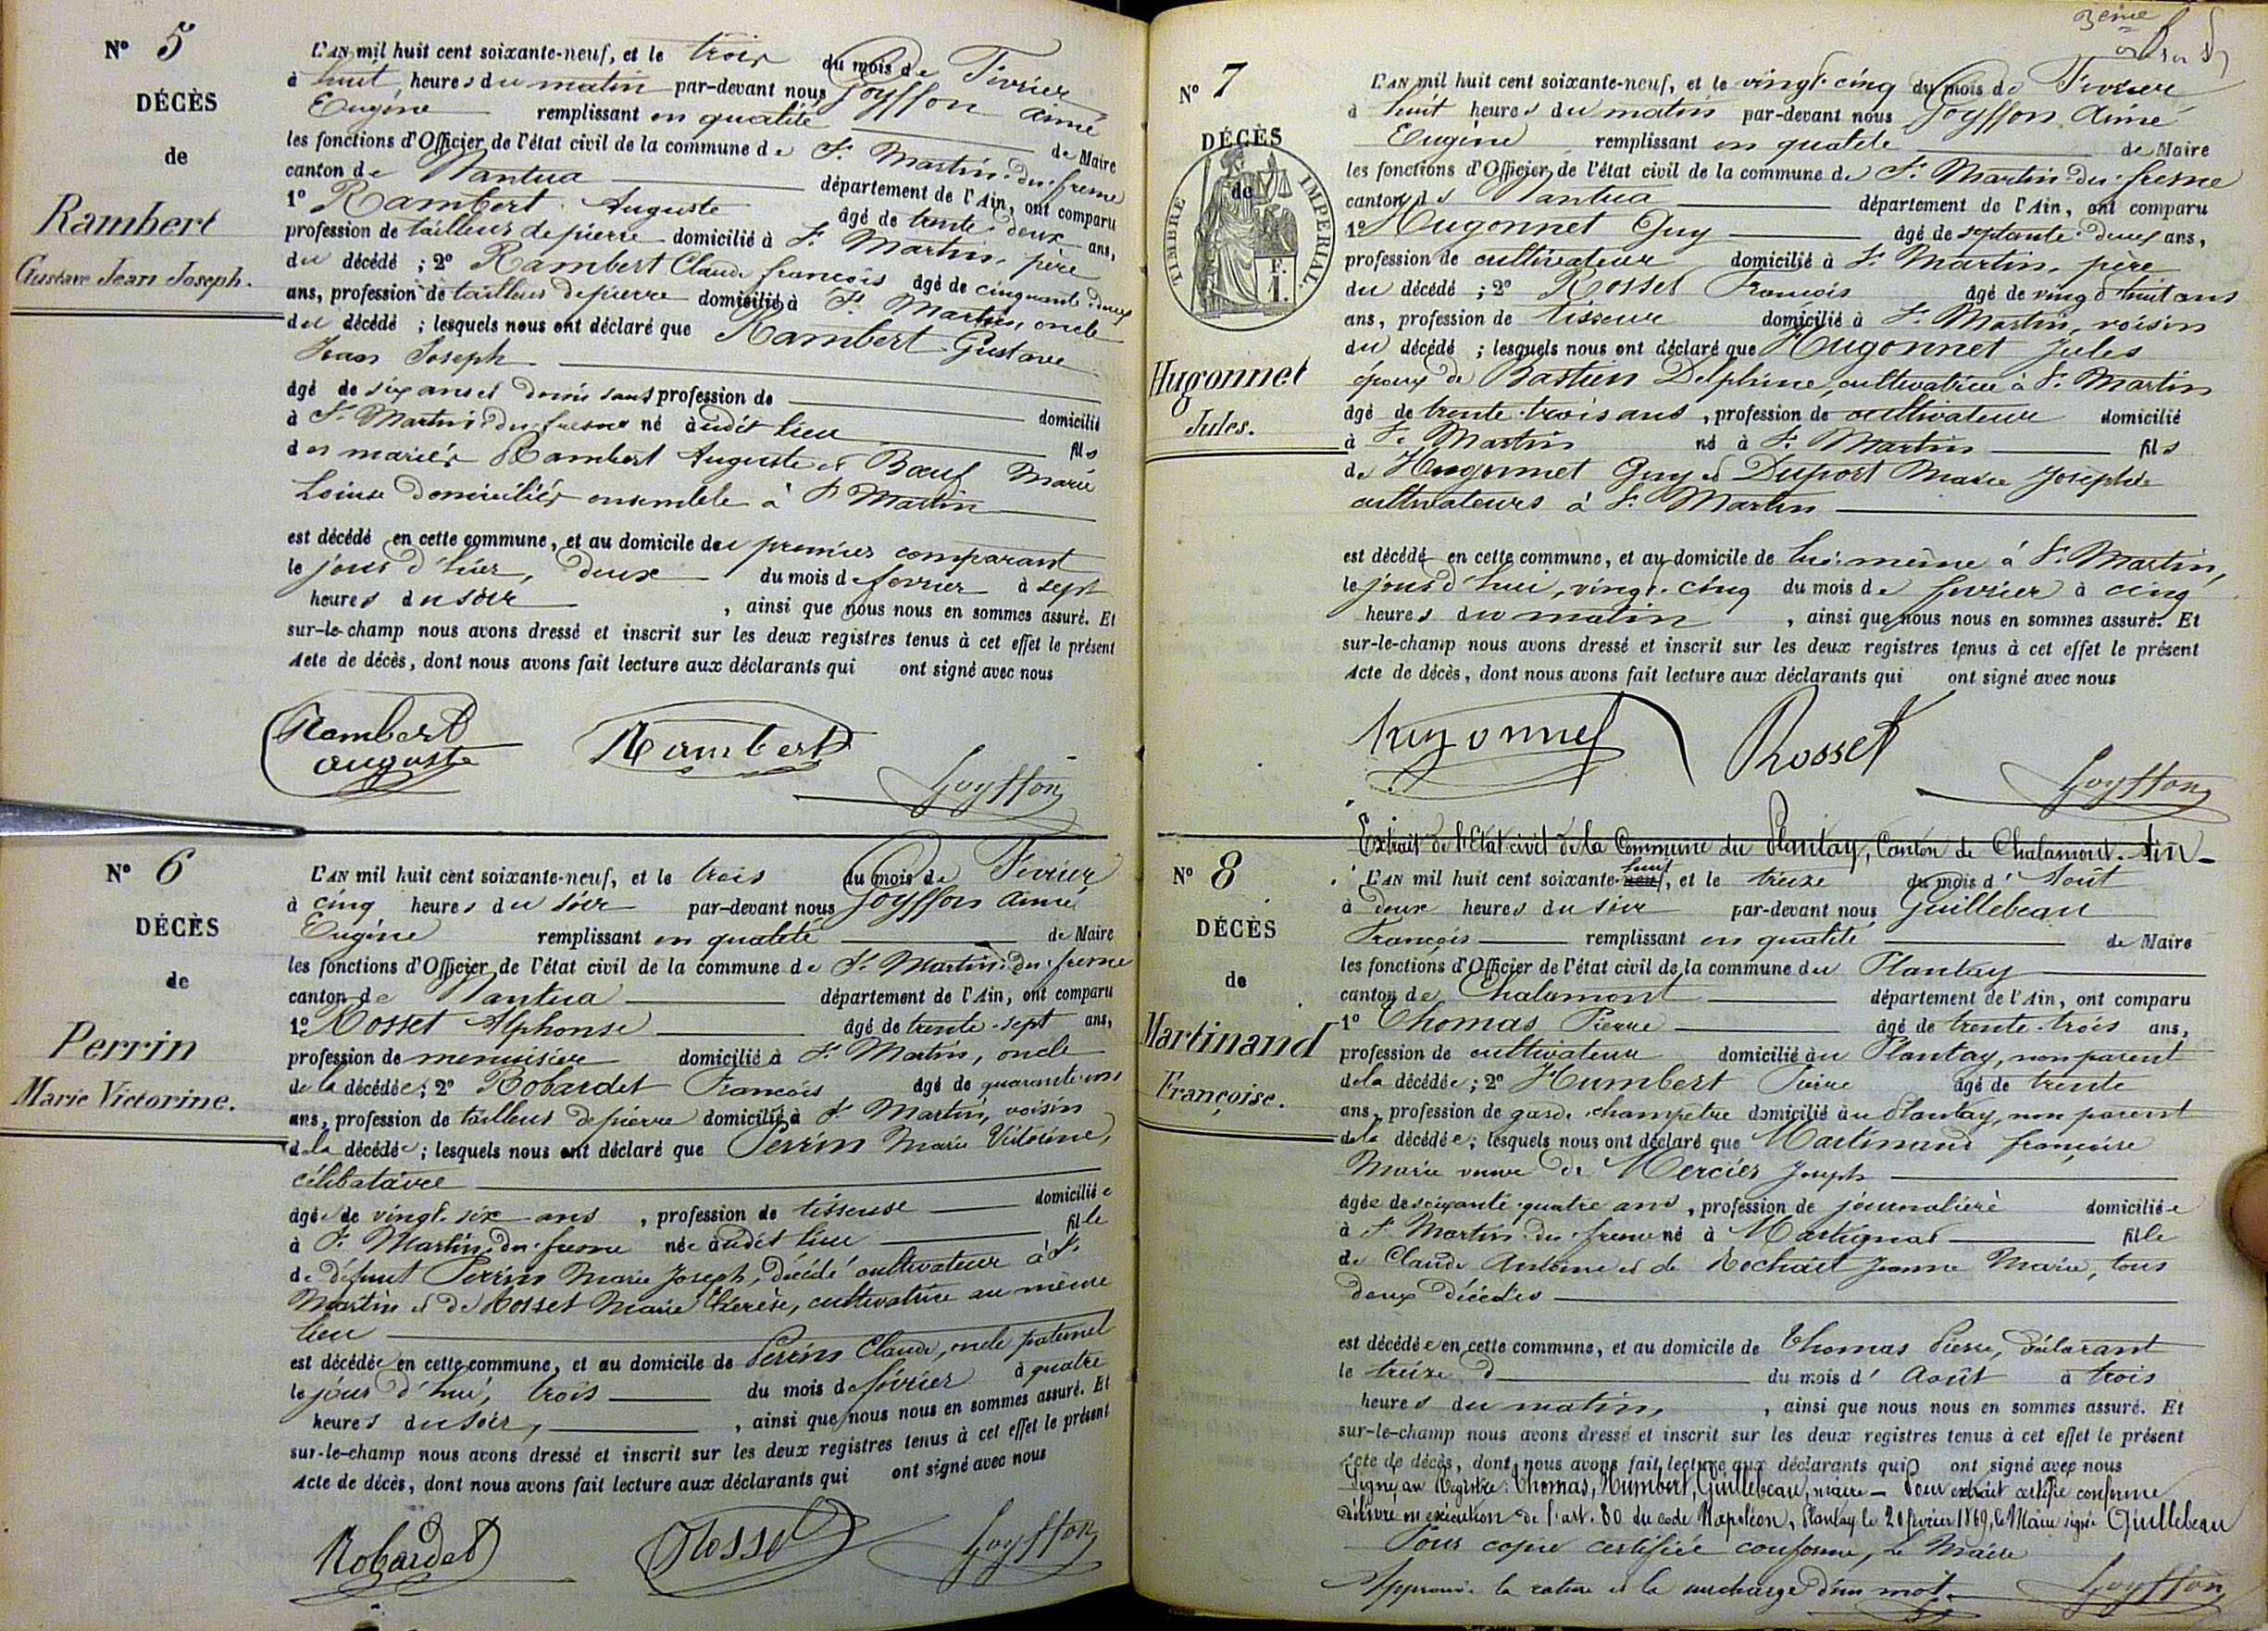 N° 5
DÉCÈS
de
Rambert
Gustave Jean Joseph.
L'AN mil huit cent soixante-neuf, et le trois du mois de Février
à huit heures du matin par-devant nous Goyffon Aimé
Eugène remplissant en qualité de Maire
les fonctions d'Officier de l'état civil de la commune de St. Martin-du-fresne
canton de Nantua département de l'Ain, ont comparu
1° Rambert Auguste âgé de trente-deux ans,
profession de tailleur de pierre domicilié à St. Martin, père
du décédé ; 2° Rambert Claude françois âgé de cinquante-deux
ans, profession de tailleur de pierre domicilié à St. Martin, oncle
du décédé ; lesquels nous ont déclaré que Rambert Gustave
Jean Joseph
âgé de six ans et demi sans profession de domicilié
à St. Martin-du-fresne né audit lieu fils
des mariés Rambert Auguste et Bœuf Marie
Louise domiciliés ensemble à St Martin
est décédé en cette commune, et au domicile du premier comparant
le jour d'hier, deux du mois de février à sept
heures du soir , ainsi que nous nous en sommes assuré. Et
sur-le-champ nous avons dressé et inscrit sur les deux registres tenus à cet effet le présent
Acte de décès, dont nous avons fait lecture aux déclarants qui ont signé avec nous
Rambert
auguste
Rambert
Goyffon
N° 6
DÉCÈS
de
Perrin
Marie Victorine.
L'AN mil huit cent soixante-neuf, et le trois du mois de Février
à cinq heures du soir par-devant nous Goyffon Aimé
Eugène remplissant en qualité de Maire
les fonctions d'Officier de l'état civil de la commune de St. Martin-du-fresne
canton de Nantua département de l'Ain, ont comparu
1° Rosset Alphonse âgé de trente-sept ans,
profession de menuisier domicilié à St. Martin, oncle
de la décédée ; 2° Robardet François âgé de quarante-un
ans, profession de tailleur de pierre domicilié à St Martin, voisin
de la décédée ; lesquels nous ont déclaré que Perrin Marie Victorine,
célibataire
âgée de vingt-six ans , profession de tisseuse domiciliée
à St. Martin-du-fresne née audit lieu fille
de défunt Perrin Marie Joseph, décédé cultivateur à St.
Martin et de Rosset Marie Thérèse, cultivatrice au même
lieu
est décédée en cette commune, et au domicile de Perrin Claude, oncle paternel
le jour d'hui, trois du mois de février à quatre
heures du soir, , ainsi que nous nous en sommes assuré. Et
sur-le-champ nous avons dressé et inscrit sur les deux registres tenus à cet effet le présent
Acte de décès, dont nous avons fait lecture aux déclarants qui ont signé avec nous
Robardet
Rosset
Goyffon
3ème
N° 7
DÉCÈS
de
TIMBRE IMPÉRIAL.
1 F.
Hugonnet
Jules.
L'AN mil huit cent soixante-neuf, et le vingt-cinq du mois de Février
à huit heures du matin par-devant nous Goyffon Aimé
Eugène remplissant en qualité de Maire
les fonctions d'Officier de l'état civil de la commune de St. Martin-du-fresne
canton de Nantua département de l'Ain, ont comparu
1° Hugonnet Guy âgé de septante-deux ans,
profession de cultivateur domicilié à St. Martin, père
du décédé ; 2° Rosset François âgé de vingt huit ans
ans, profession de tisseur domicilié à St. Martin, voisin
du décédé ; lesquels nous ont déclaré que Hugonnet Jules
époux de Bastien Delphine, cultivatrice à St. Martin
âgé de trente-trois ans , profession de cultivateur domicilié
à St. Martin né à St. Martin fils
de Hugonnet Guy et Duport Marie Josephte
cultivateurs à St. Martin
est décédé en cette commune, et au domicile de lui-même à St. Martin,
le jour d'hui, vingt-cinq du mois de février à cinq
heures du matin , ainsi que nous nous en sommes assuré. Et
sur-le-champ nous avons dressé et inscrit sur les deux registres tenus à cet effet le présent
Acte de décès, dont nous avons fait lecture aux déclarants qui ont signé avec nous
hugonnet
Rosset
Goyffon
Extrait de l'Etat civil de la Commune du Plantay, Canton de Chalamont. Ain
N° 8
DÉCÈS
de
Martinand
Françoise.
L'AN mil huit cent soixante-neuf huit, et le treize du mois d'Août
à deux heures du soir par-devant nous Guillebeau
François remplissant en qualité de Maire
les fonctions d'Officier de l'état civil de la commune du Plantay
canton de Chalamont département de l'Ain, ont comparu
1° Thomas Pierre âgé de trente-trois ans,
profession de cultivateur domicilié au Plantay, non parent
de la décédée ; 2° Humbert âgé de trente
ans, profession de garde-champêtre domicilié au Plantay, non parent
de la décédée ; lesquels nous ont déclaré que Martinand françoise
Marie veuve de Mercier Joseph
âgée de soixante-quatre ans , profession de journalière domiciliée
à St. Martin-du-fresne né à Martignat fille
de Claude Antoine et de Rochait Jeanne Marie, tous
deux décédés
est décédée en cette commune, et au domicile de Thomas Pierre, déclarant
le treize d du mois d'Août à trois
heures du matin, , ainsi que nous nous en sommes assuré. Et
sur-le-champ nous avons dressé et inscrit sur les deux registres tenus à cet effet le présent
Acte de décès, dont nous avons fait lecture aux déclarants qui ont signé avec nous
Signé au Registre : Thomas, Humbert, Guillebeau, maire — Pour extrait certifié conforme
délivré en exécution de l'art. 80 du code Napoléon, Plantay le 20 février 1869, le Maire signé Guillebeau
Pour copie certifiée conforme, le Maire
Approuvé la rature et la surcharge d'un mot.
Goyffon